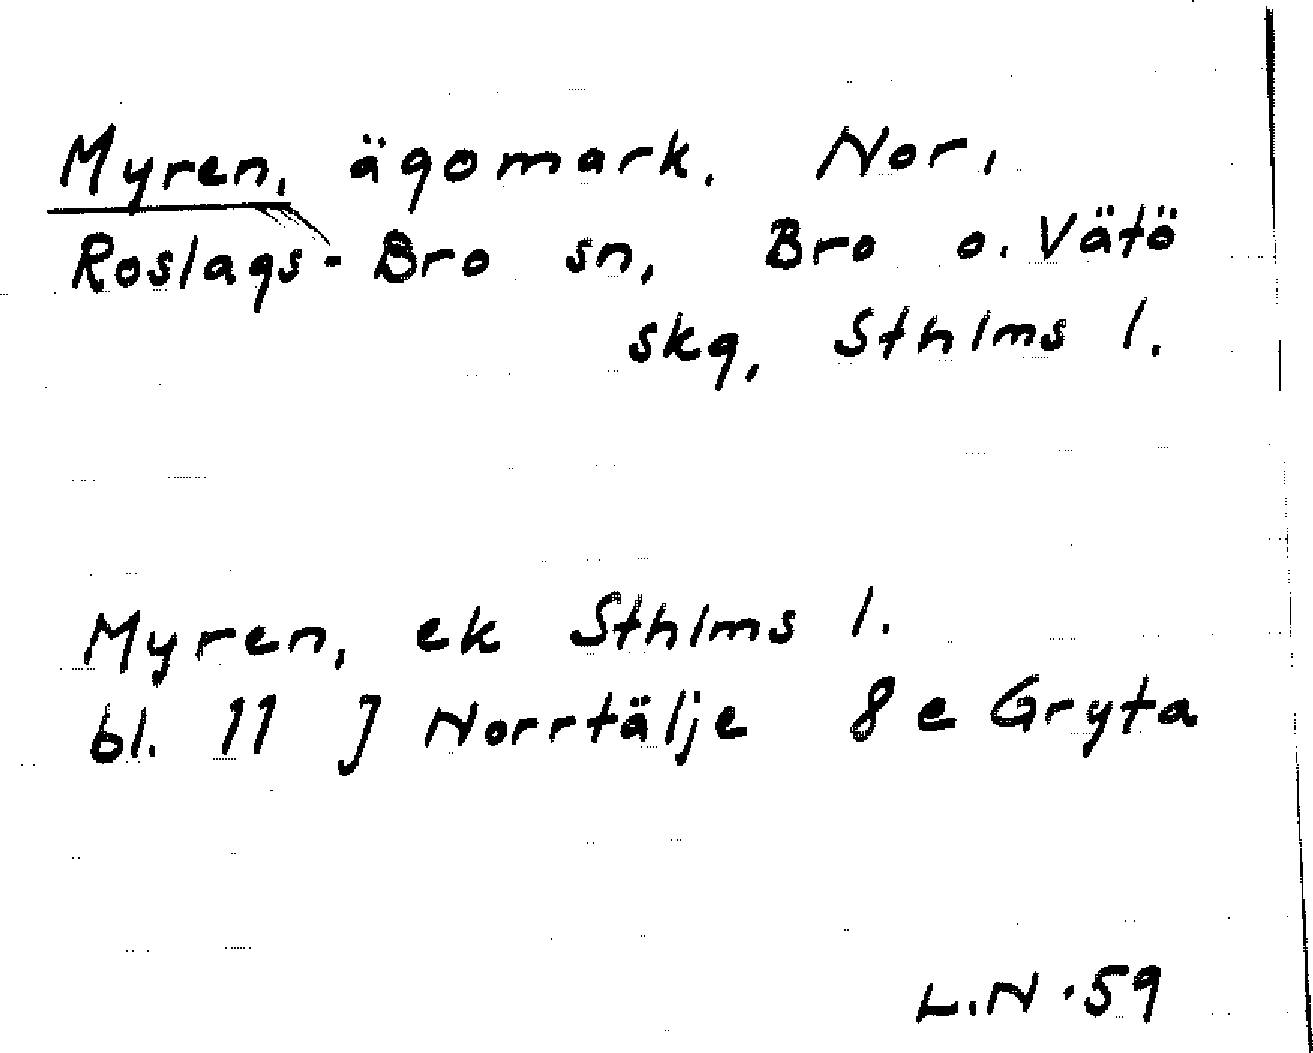 Myren, ägomark. Nor,
Roslags-Bro sn, Bro o. Vätö
skg, Sthlms l.
Myren, ek Sthlms l.
bl. 11 J Norrtälje 8 e Gryta
L.N. 59